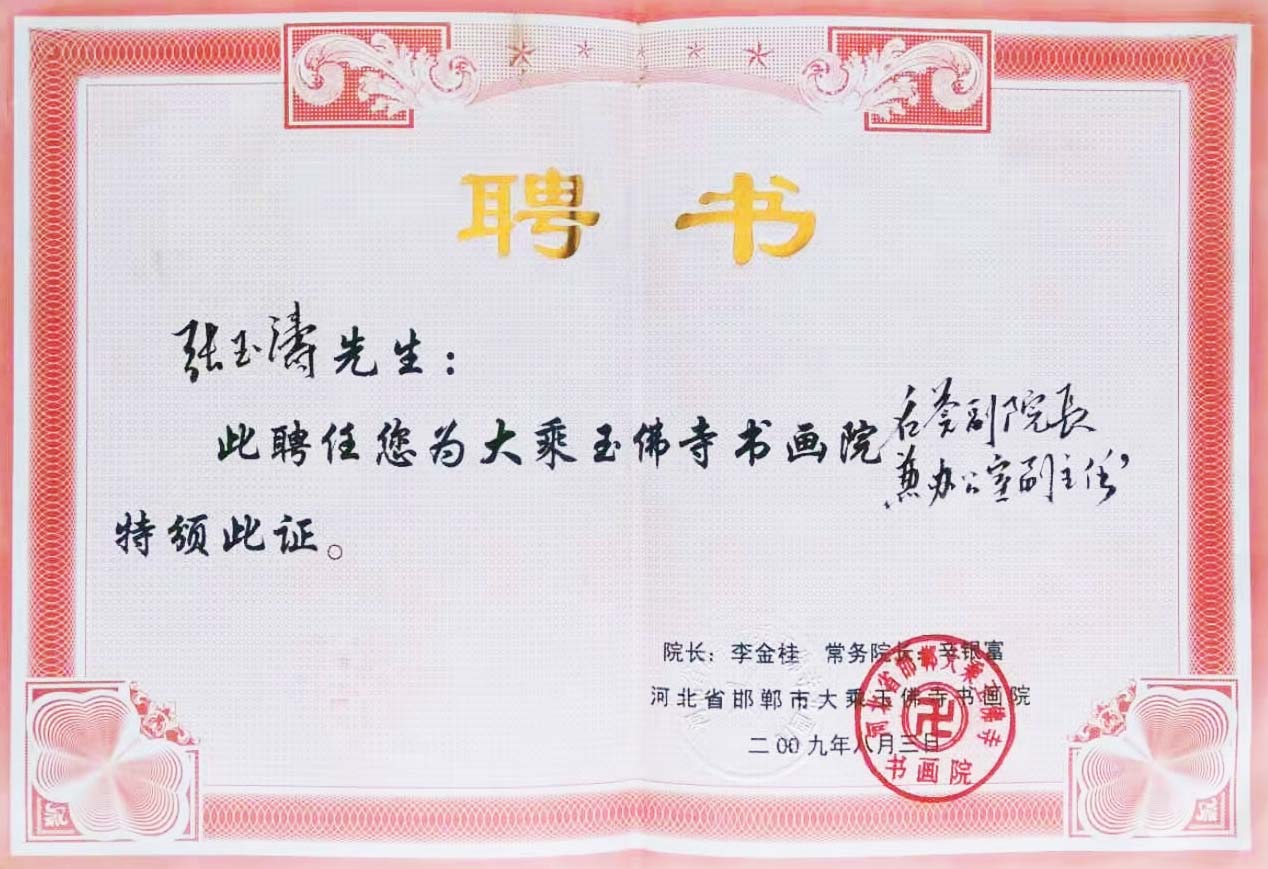 聘书
张玉涛先生：
此聘任您为大乘玉佛寺书画院名誉副院長
兼办公室副主任，
特颁此证。
院长：李金桂 常务院长：辛银富
河北省邯郸市大乘玉佛寺书画院
二00九年八月三日
河北省邯郸大乘玉佛寺
卍
书画院